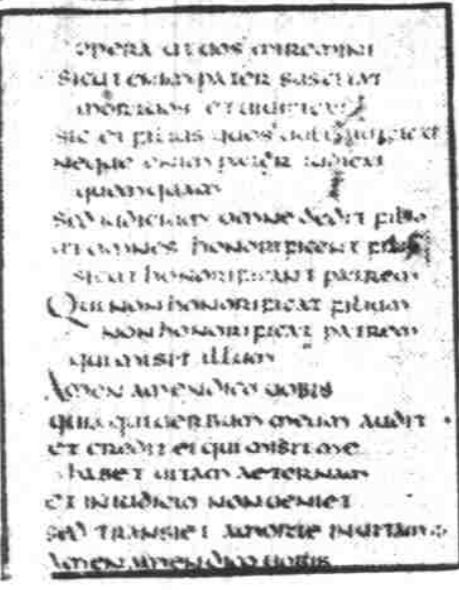 opera ut uos miremini
sicut enim pater suscitat
mortuos et uiuificat
sic et filius quos uult uiuificat
neque enim pater iudicat
quemquam
sed iudicium omne dedit filio
ut omnes honorificent filium
sicut honorificant patrem
Qui non honorificat filium
non honorificat patrem
qui misit illum
Amen amen dico uobis
quia qui uerbum meum audit
et credit ei qui misit me
habet uitam aeternam
et in iudicio non ueniet
sed transiet a morte in uitam
Amen amen dico uobis